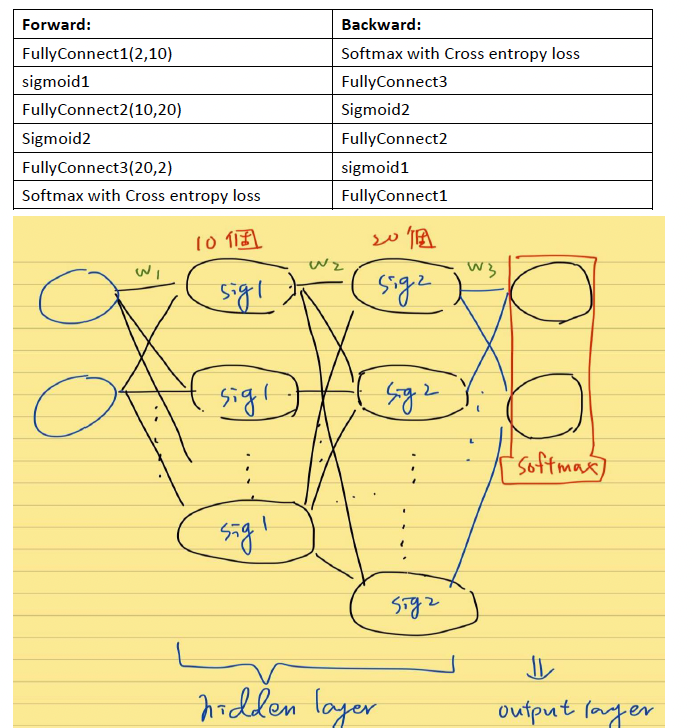 Forward: Backward:
FullyConnect1(2,10) Softmax with Cross entropy loss
sigmoid1 FullyConnect3
FullyConnect2(10,20) Sigmoid2
Sigmoid2 FullyConnect2
FullyConnect3(20,2) sigmoid1
Softmax with Cross entropy loss FullyConnect1
10個 20個
w1 w2 w3
sig1 sig2
sig1 sig2
softmax
sig1
sig2
hidden layer output layer